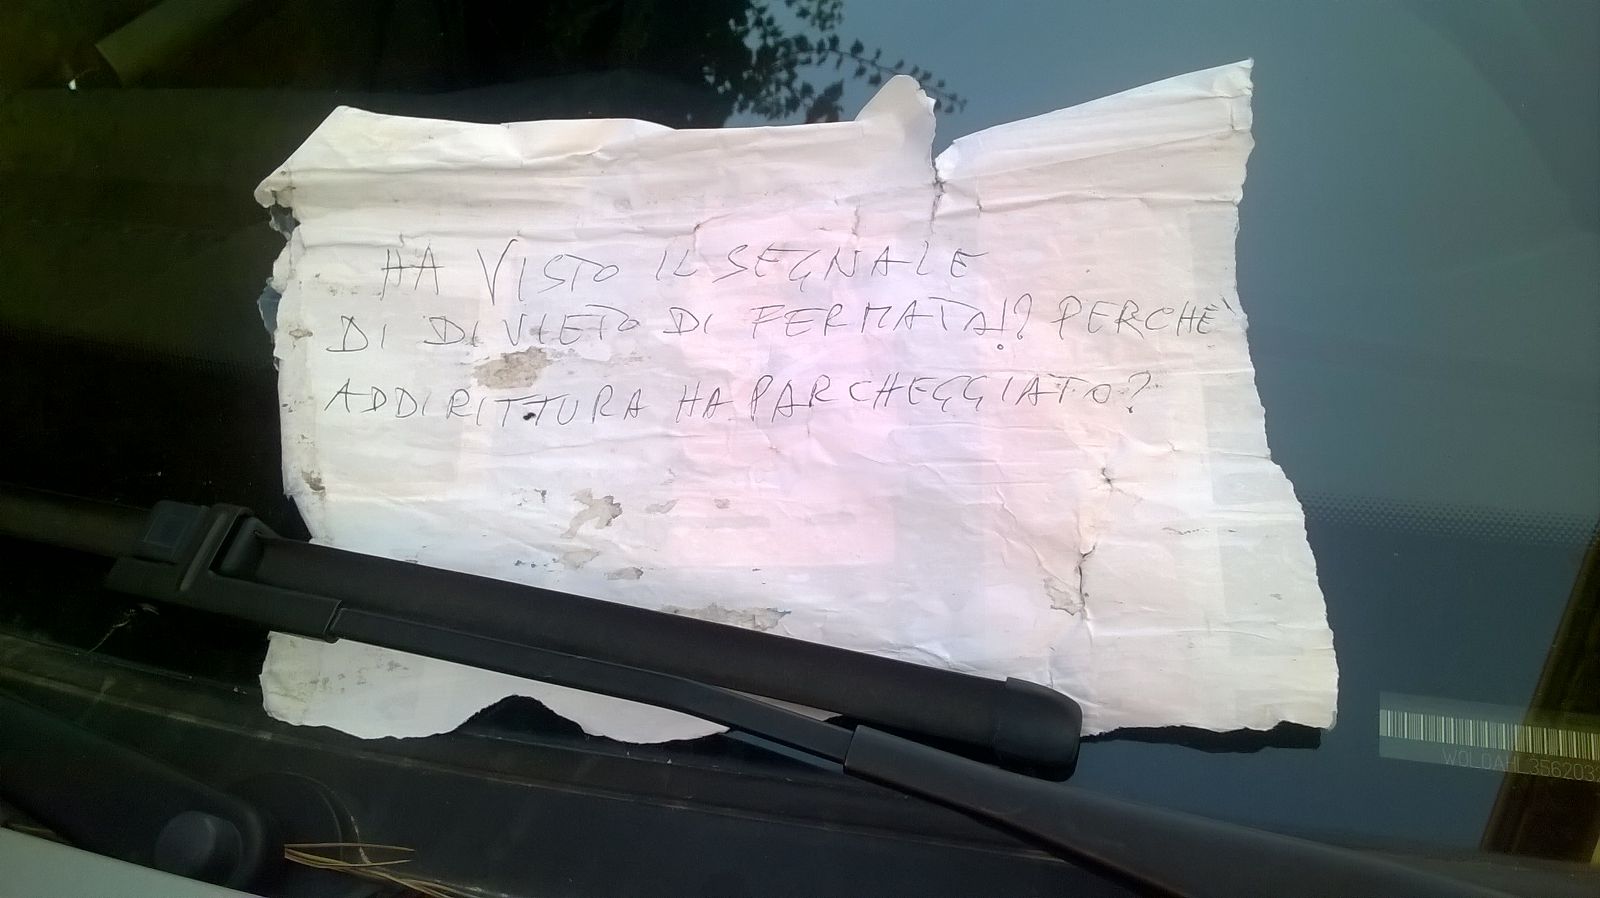 HA VISTO IL SEGNALE
DI DIVIETO DI FERMATA!? PERCHÈ
ADDIRITTURA HA PARCHEGGIATO?
W0L0AHL356203